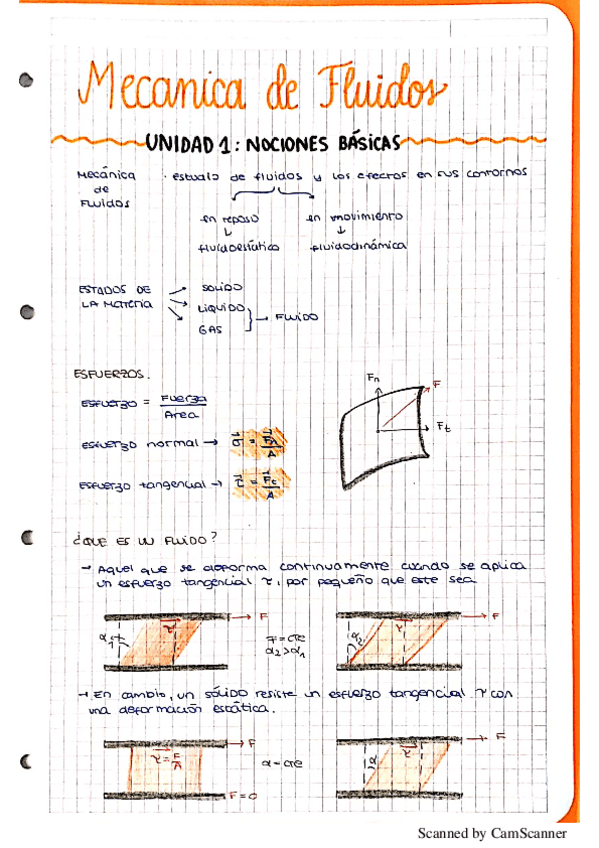 Mecanica de Fluidos
UNIDAD 1: NOCIONES BÁSICAS
Mecánica de Fluidos · estudio de fluidos y los efectos en sus contornos
en reposo en movimiento
↓ ↓
fluidoestática fluidodinámica
ESTADOS DE LA MATERIA
SOLIDO
LIQUIDO
GAS
→ FLUIDO
ESFUERZOS.
ESFUERZO = Fuerza / Area
esfuerzo normal → σ = Fn / A
esfuerzo tangencial → τ = Ft / A
Fn
F
Ft
¿QUE ES UN FLUIDO?
→ Aquel que se deforma continuamente cuando se aplica
un esfuerzo tangencial τ, por pequeño que este sea
α1 τ → F
F = cte
α2 > α1
α2 τ → F
→ En cambio, un sólido resiste un esfuerzo tangencial τ con
una deformación estática.
τ = F/A → F
F = 0
α = cte
α τ → F
Scanned by CamScanner